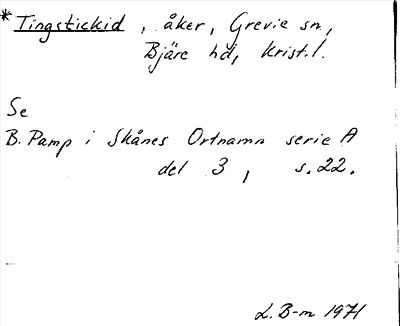 *Tingstickid, åker, Grevie sn,
Bjäre hd, Krist.l.
Se
B. Pamp i Skånes Ortnamn serie A
del 3, s. 22.
L. B-m 1971